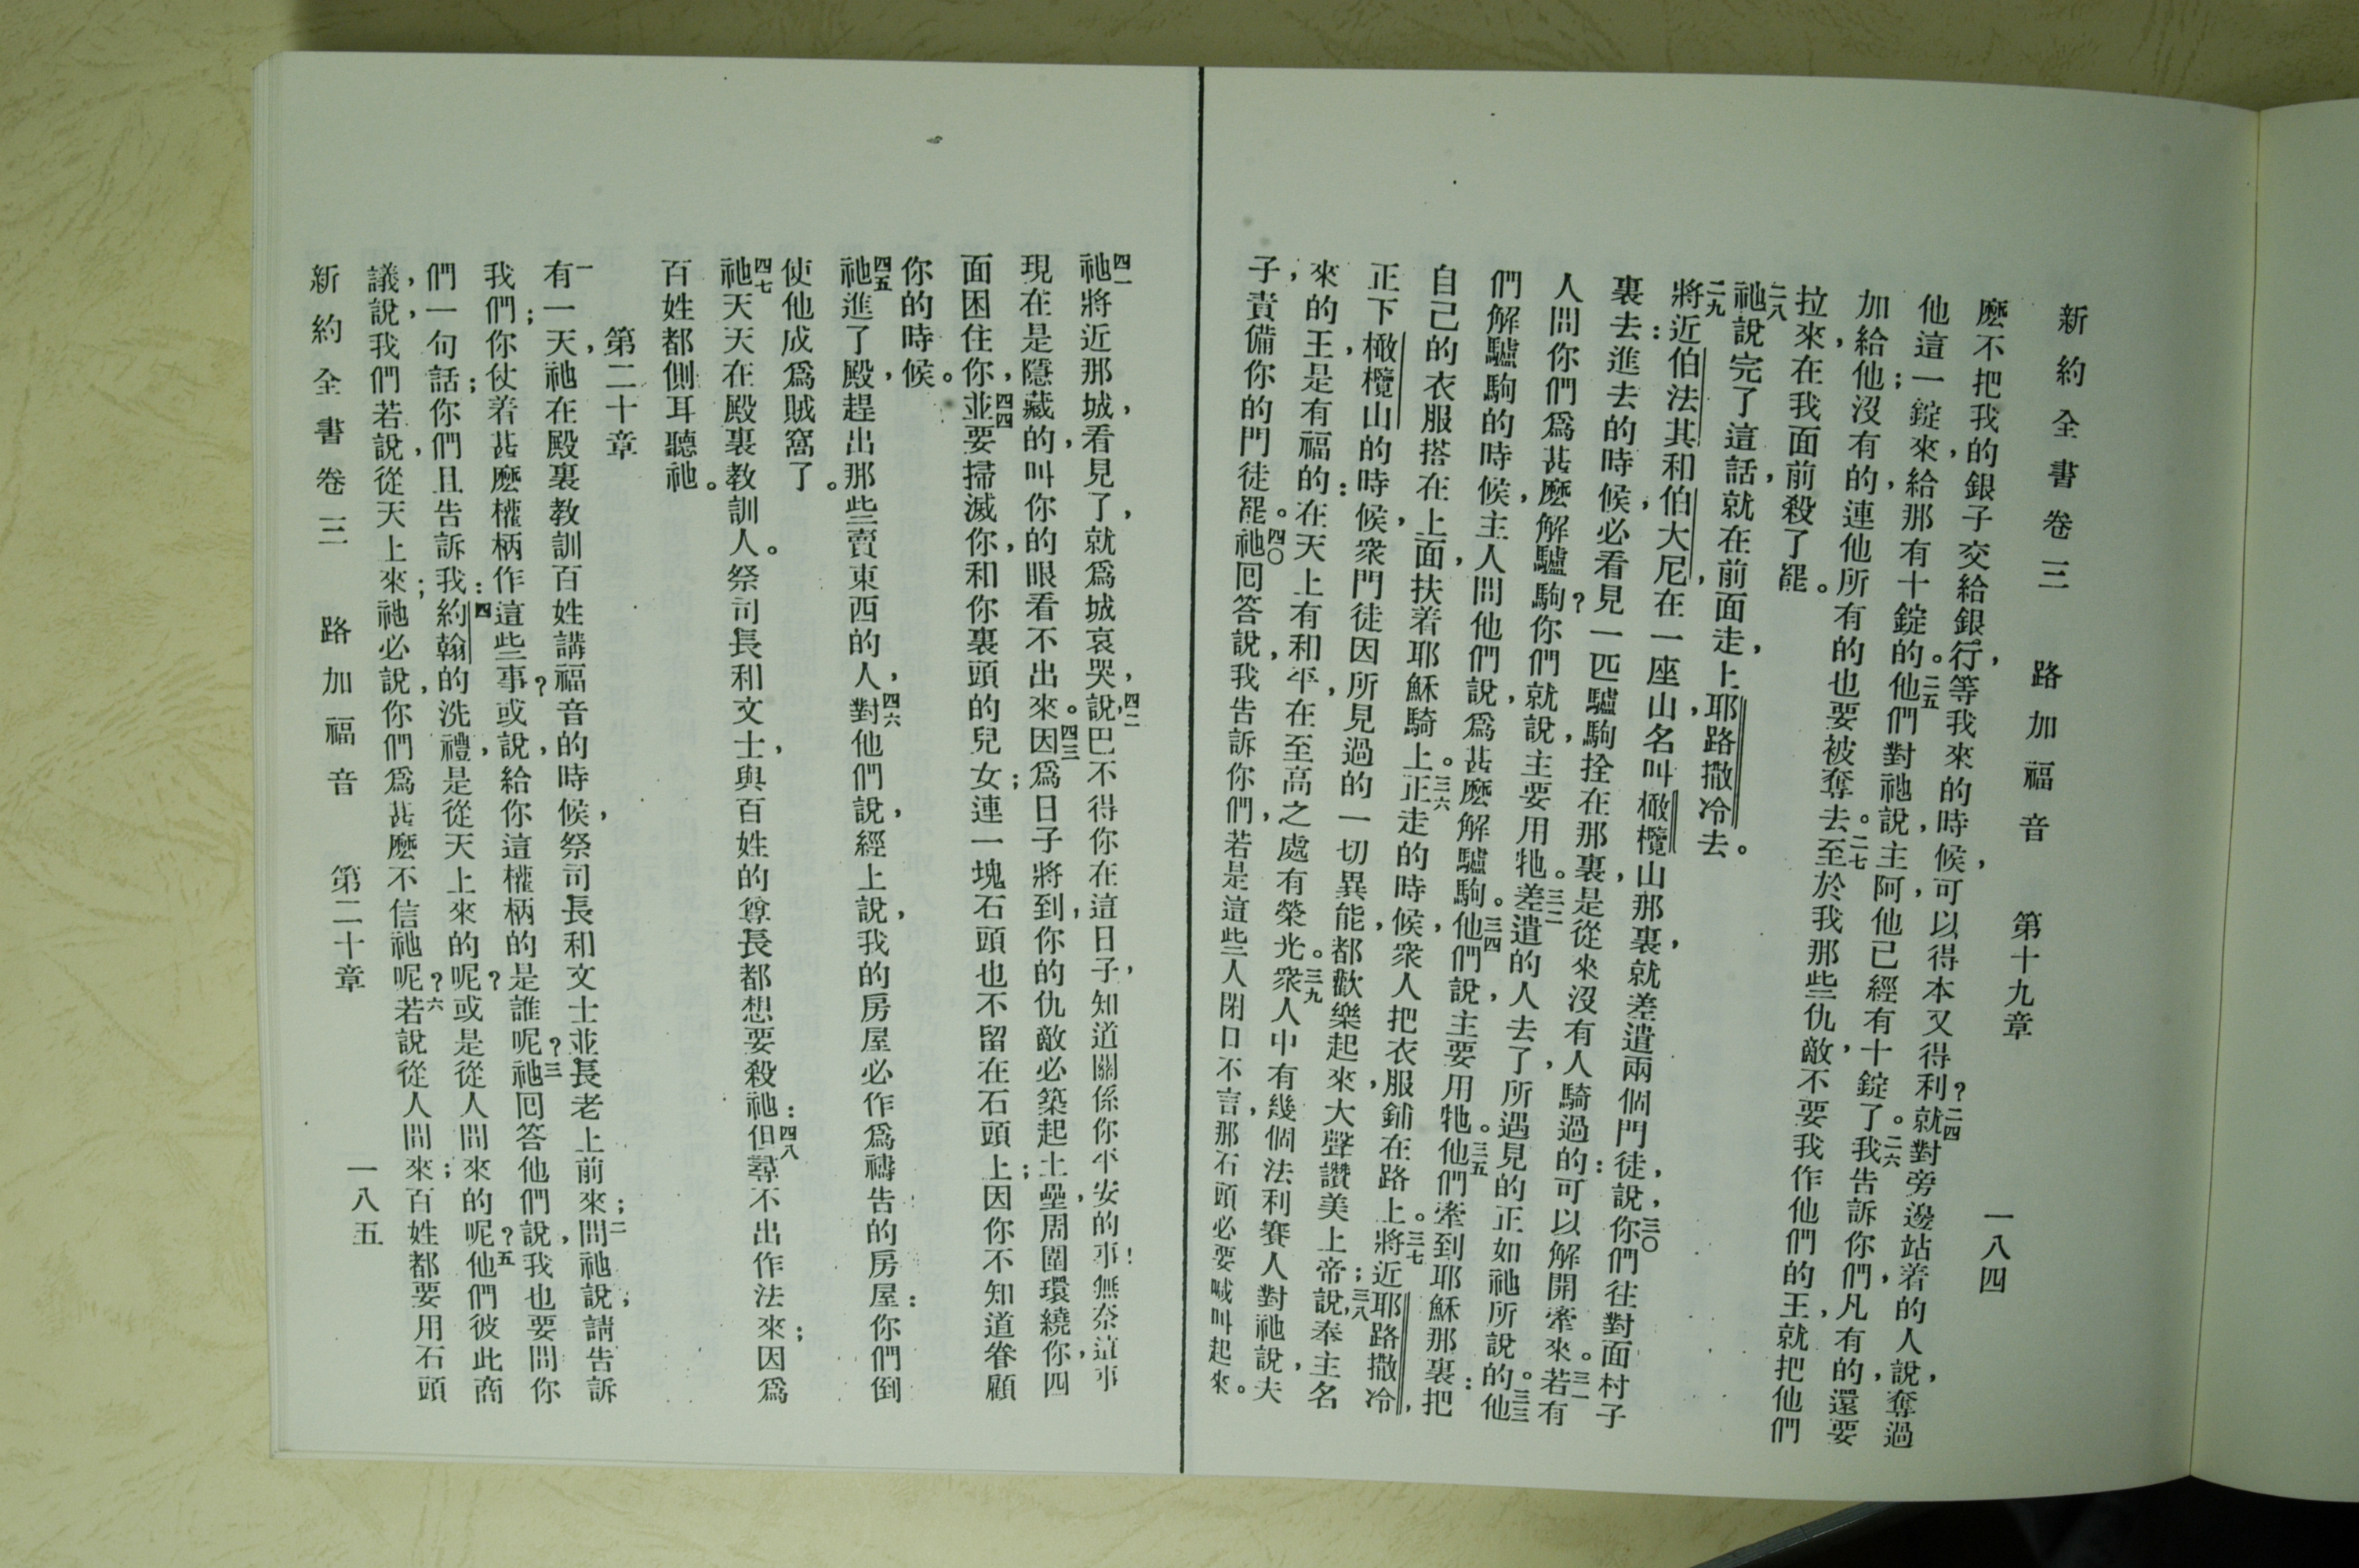 新約全書卷三 路加福音 第十九章 一八四
麼不把我的銀子交給銀行，等我來的時候，可以得本又得利？二四就對旁邊站着的人說，奪過
他這一錠來，給那有十錠的。二五他們對祂說，主阿，他已經有十錠了。二六我告訴你們，凡有的，還要
加給他；沒有的，連他所有的也要被奪去。二七至於我那些仇敵，不要我作他們的王，就把他們
拉來，在我面前殺了罷。
二八祂說完了這話，就在前面走，上耶路撒冷去。
二九將近伯法其和伯大尼，在一座山，名叫橄欖山那裏，就差遣兩個門徒，說，三〇你們往對面村子
裏去：進去的時候，必看見一匹驢駒，拴在那裏，是從來沒有人騎過的：可以解開牽來。三一若有
人問你們爲甚麼解驢駒？你們就說，主要用牠。三二差遣的人去了，所遇見的正如祂所說的。三三他
們解驢駒的時候，主人問他們，說，爲甚麼解驢駒。三四他們說，主要用牠。三五他們牽到耶穌那裏：把
自己的衣服搭在上面，扶着耶穌騎上。三六正走的時候，衆人把衣服鋪在路上。三七將近耶路撒冷，
正下橄欖山的時候，衆門徒因所見過的一切異能，都歡樂起來，大聲讚美上帝；三八說，奉主名
來的王，是有福的：在天上有和平，在至高之處有榮光。三九衆人中有幾個法利賽人對祂說，夫
子，責備你的門徒罷。四〇祂回答說，我告訴你們，若是這些人閉口不言，那石頭必要喊叫起來。
四一祂將近那城，看見了，就爲城哀哭，四二說，巴不得你在這日子，知道關係你平安的事！無奈這事
現在是隱藏的，叫你的眼看不出來。四三因爲日子將到，你的仇敵必築起土壘，周圍環繞你，四
面困住你，四四並要掃滅你，和你裏頭的兒女；連一塊石頭也不留在石頭上；因你不知道眷顧
你的時候。
四五祂進了殿，趕出那些賣東西的人，四六對他們說，經上說，我的房屋必作爲禱告的房屋：你們倒
使他成爲賊窩了。
四七祂天天在殿裏教訓人。祭司長和文士，與百姓的尊長都想要殺祂：四八但尋不出作法來；因爲
百姓都側耳聽祂。
第二十章
一有一天，祂在殿裏教訓百姓講福音的時候，祭司長和文士並長老上前來；二問祂說；請告訴
我們；你仗着甚麼權柄作這些事？或說，給你這權柄的是誰呢？三祂回答他們說，我也要問你
們一句話；你們且告訴我：四約翰的洗禮，是從天上來的呢？或是從人間來的呢？五他們彼此商
議，說，我們若說，從天上來；祂必說，你們爲甚麼不信祂呢？六若說從人間來；百姓都要用石頭
新約全書卷三 路加福音 第二十章 一八五